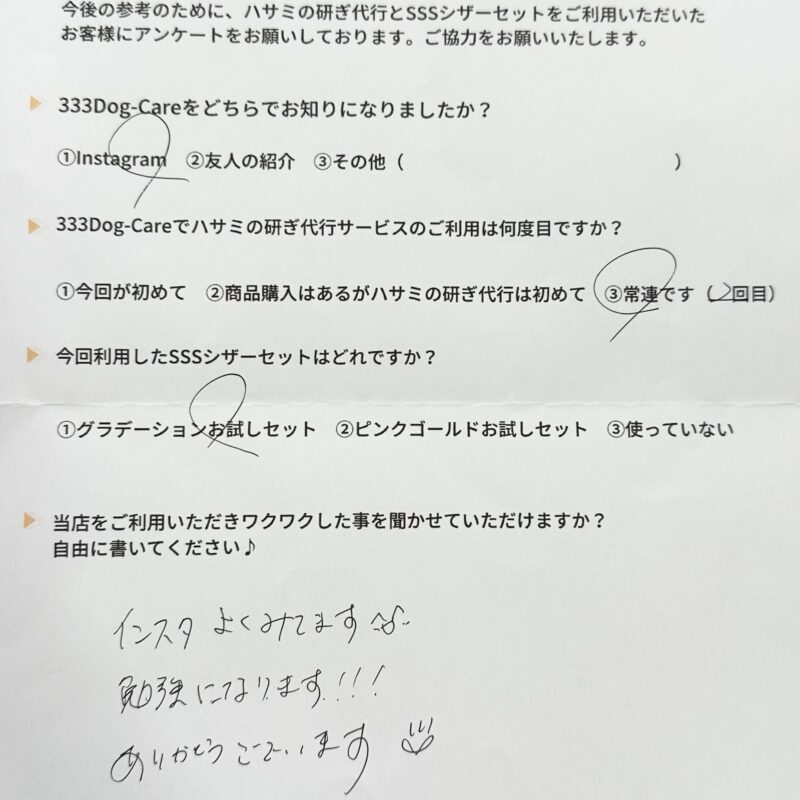 今後の参考のために、ハサミの研ぎ代行とSSSシザーセットをご利用いただいた
お客様にアンケートをお願いしております。ご協力をお願いいたします。
333Dog-Careをどちらでお知りになりましたか？
①Instagram ②友人の紹介 ③その他（ ）
333Dog-Careでハサミの研ぎ代行サービスのご利用は何度目ですか？
①今回が初めて ②商品購入はあるがハサミの研ぎ代行は初めて ③常連です（2回目）
今回利用したSSSシザーセットはどれですか？
①グラデーションお試しセット ②ピンクゴールドお試しセット ③使っていない
当店をご利用いただきワクワクした事を聞かせていただけますか？
自由に書いてください♪
インスタ よくみてます
勉強になります!!!
ありがとうございます